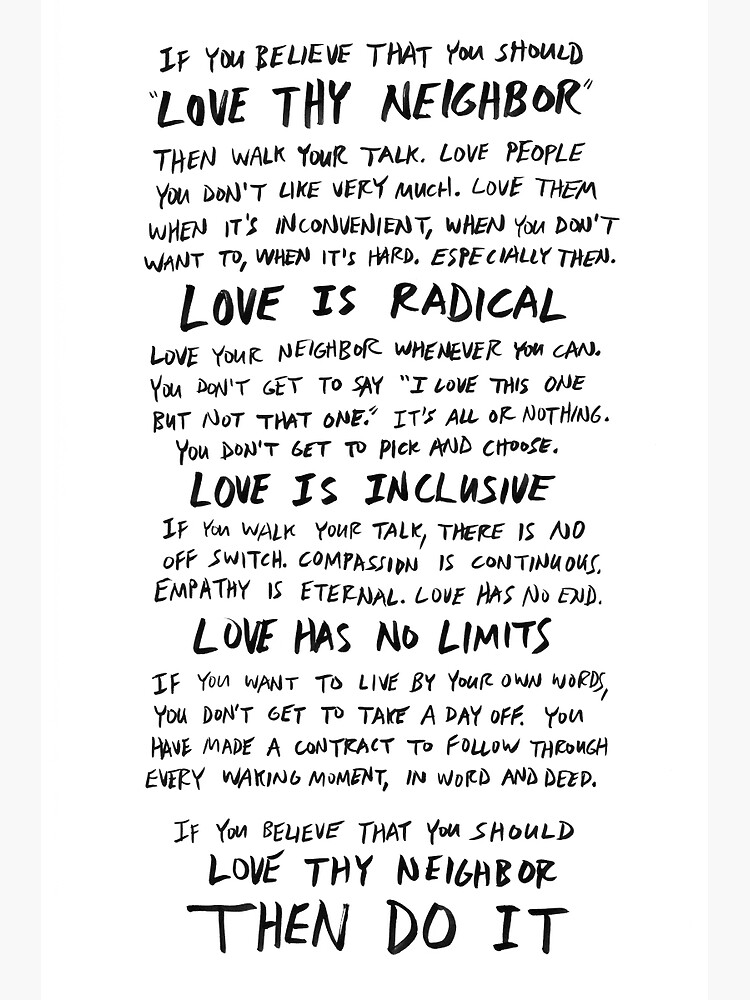 IF YOU BELIEVE THAT YOU SHOULD
"LOVE THY NEIGHBOR"
THEN WALK YOUR TALK. LOVE PEOPLE
YOU DON'T LIKE VERY MUCH. LOVE THEM
WHEN IT'S INCONVENIENT, WHEN YOU DON'T
WANT TO, WHEN IT'S HARD. ESPECIALLY THEN.
LOVE IS RADICAL
LOVE YOUR NEIGHBOR WHENEVER YOU CAN.
YOU DON'T GET TO SAY "I LOVE THIS ONE
BUT NOT THAT ONE." IT'S ALL OR NOTHING.
YOU DON'T GET TO PICK AND CHOOSE.
LOVE IS INCLUSIVE
IF YOU WALK YOUR TALK, THERE IS NO
OFF SWITCH. COMPASSION IS CONTINUOUS.
EMPATHY IS ETERNAL. LOVE HAS NO END.
LOVE HAS NO LIMITS
IF YOU WANT TO LIVE BY YOUR OWN WORDS,
YOU DON'T GET TO TAKE A DAY OFF. YOU
HAVE MADE A CONTRACT TO FOLLOW THROUGH
EVERY WAKING MOMENT, IN WORD AND DEED.
IF YOU BELIEVE THAT YOU SHOULD
LOVE THY NEIGHBOR
THEN DO IT